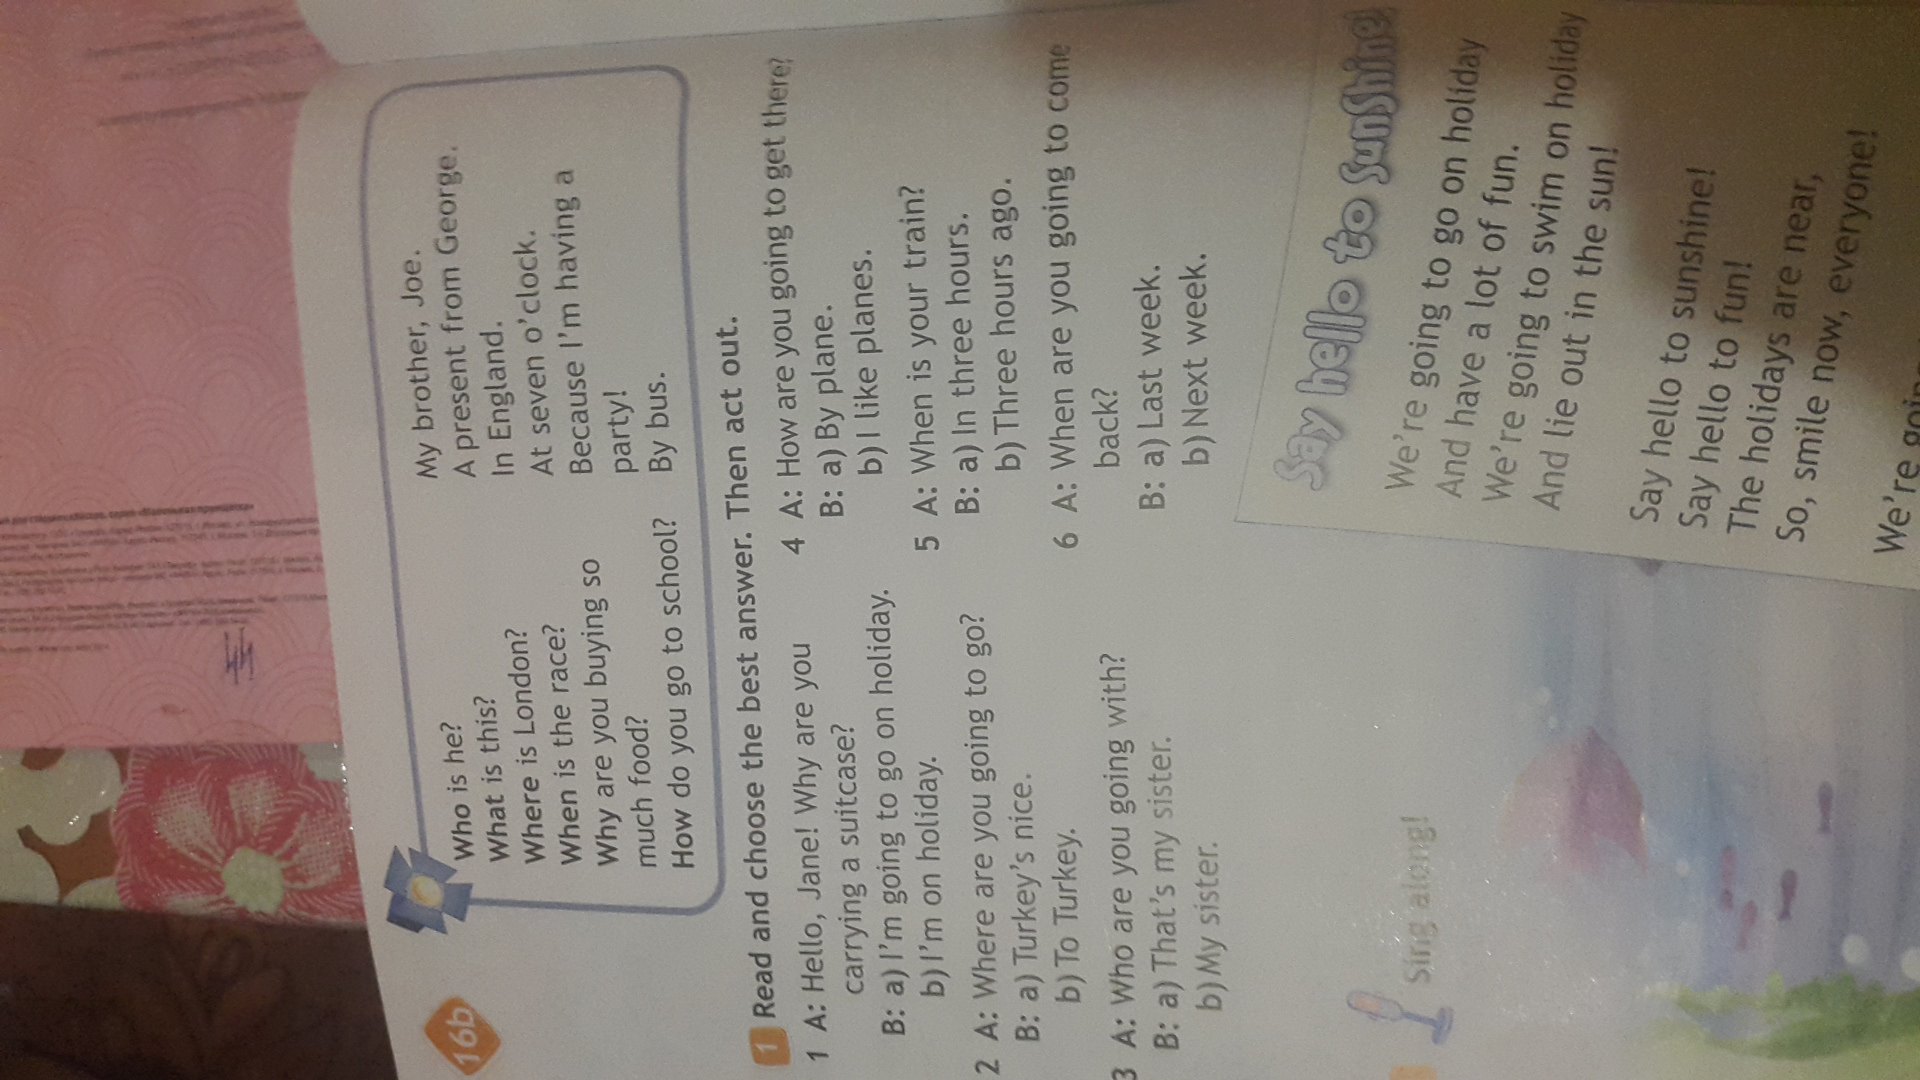 16b
Who is he?
What is this?
Where is London?
When is the race?
Why are you buying so
much food?
How do you go to school?
My brother, Joe.
A present from George.
In England.
At seven o'clock.
Because I'm having a
party!
By bus.
1 Read and choose the best answer. Then act out.
1 A: Hello, Jane! Why are you
carrying a suitcase?
B: a) I'm going to go on holiday.
b) I'm on holiday.
2 A: Where are you going to go?
B: a) Turkey's nice.
b) To Turkey.
3 A: Who are you going with?
B: a) That's my sister.
b) My sister.
4 A: How are you going to get there?
B: a) By plane.
b) I like planes.
5 A: When is your train?
B: a) In three hours.
b) Three hours ago.
6 A: When are you going to come
back?
B: a) Last week.
b) Next week.
Sing along!
Say hello to sunshine
We're going to go on holiday
And have a lot of fun.
We're going to swim on holiday
And lie out in the sun!
Say hello to sunshine!
Say hello to fun!
The holidays are near,
So, smile now, everyone!
We're going